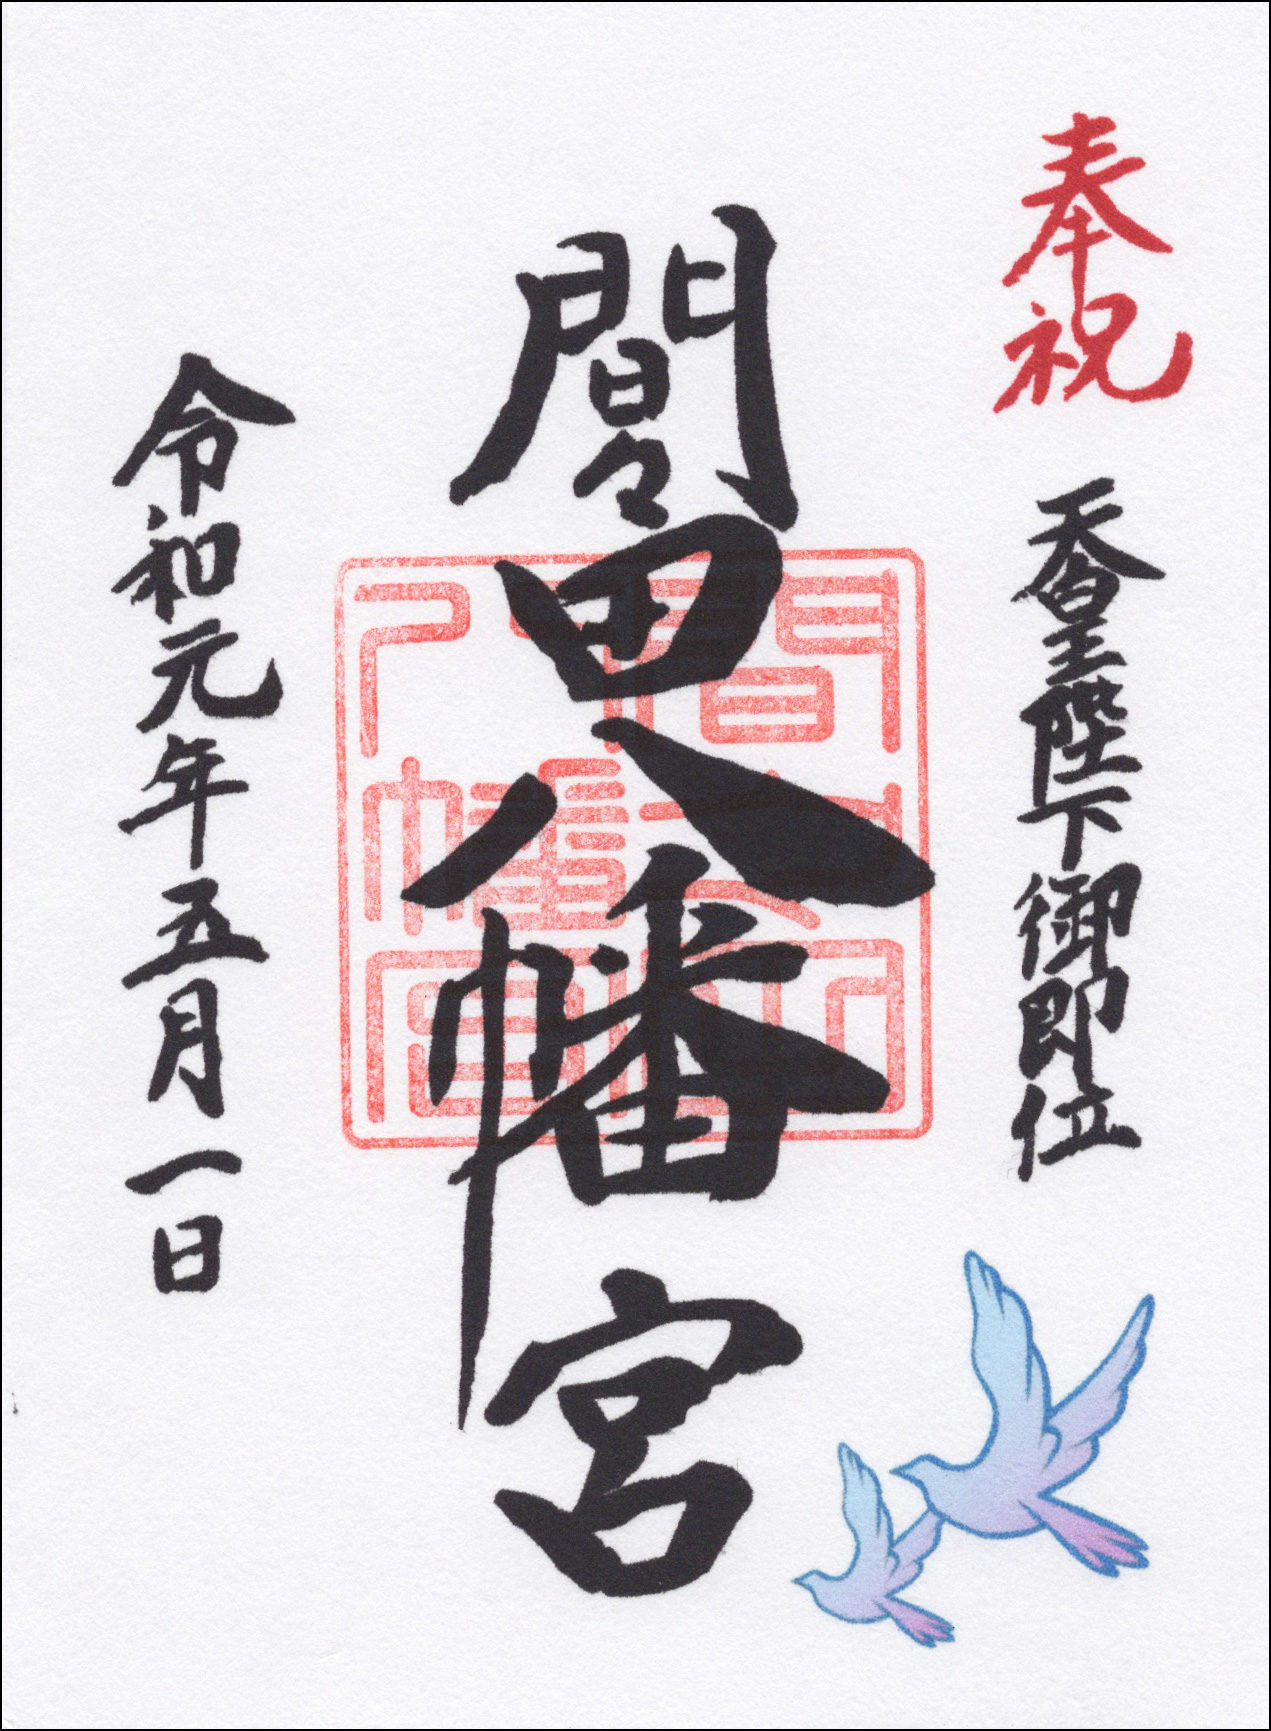 奉祝
天皇陛下御即位
間々田八幡宮
令和元年五月一日